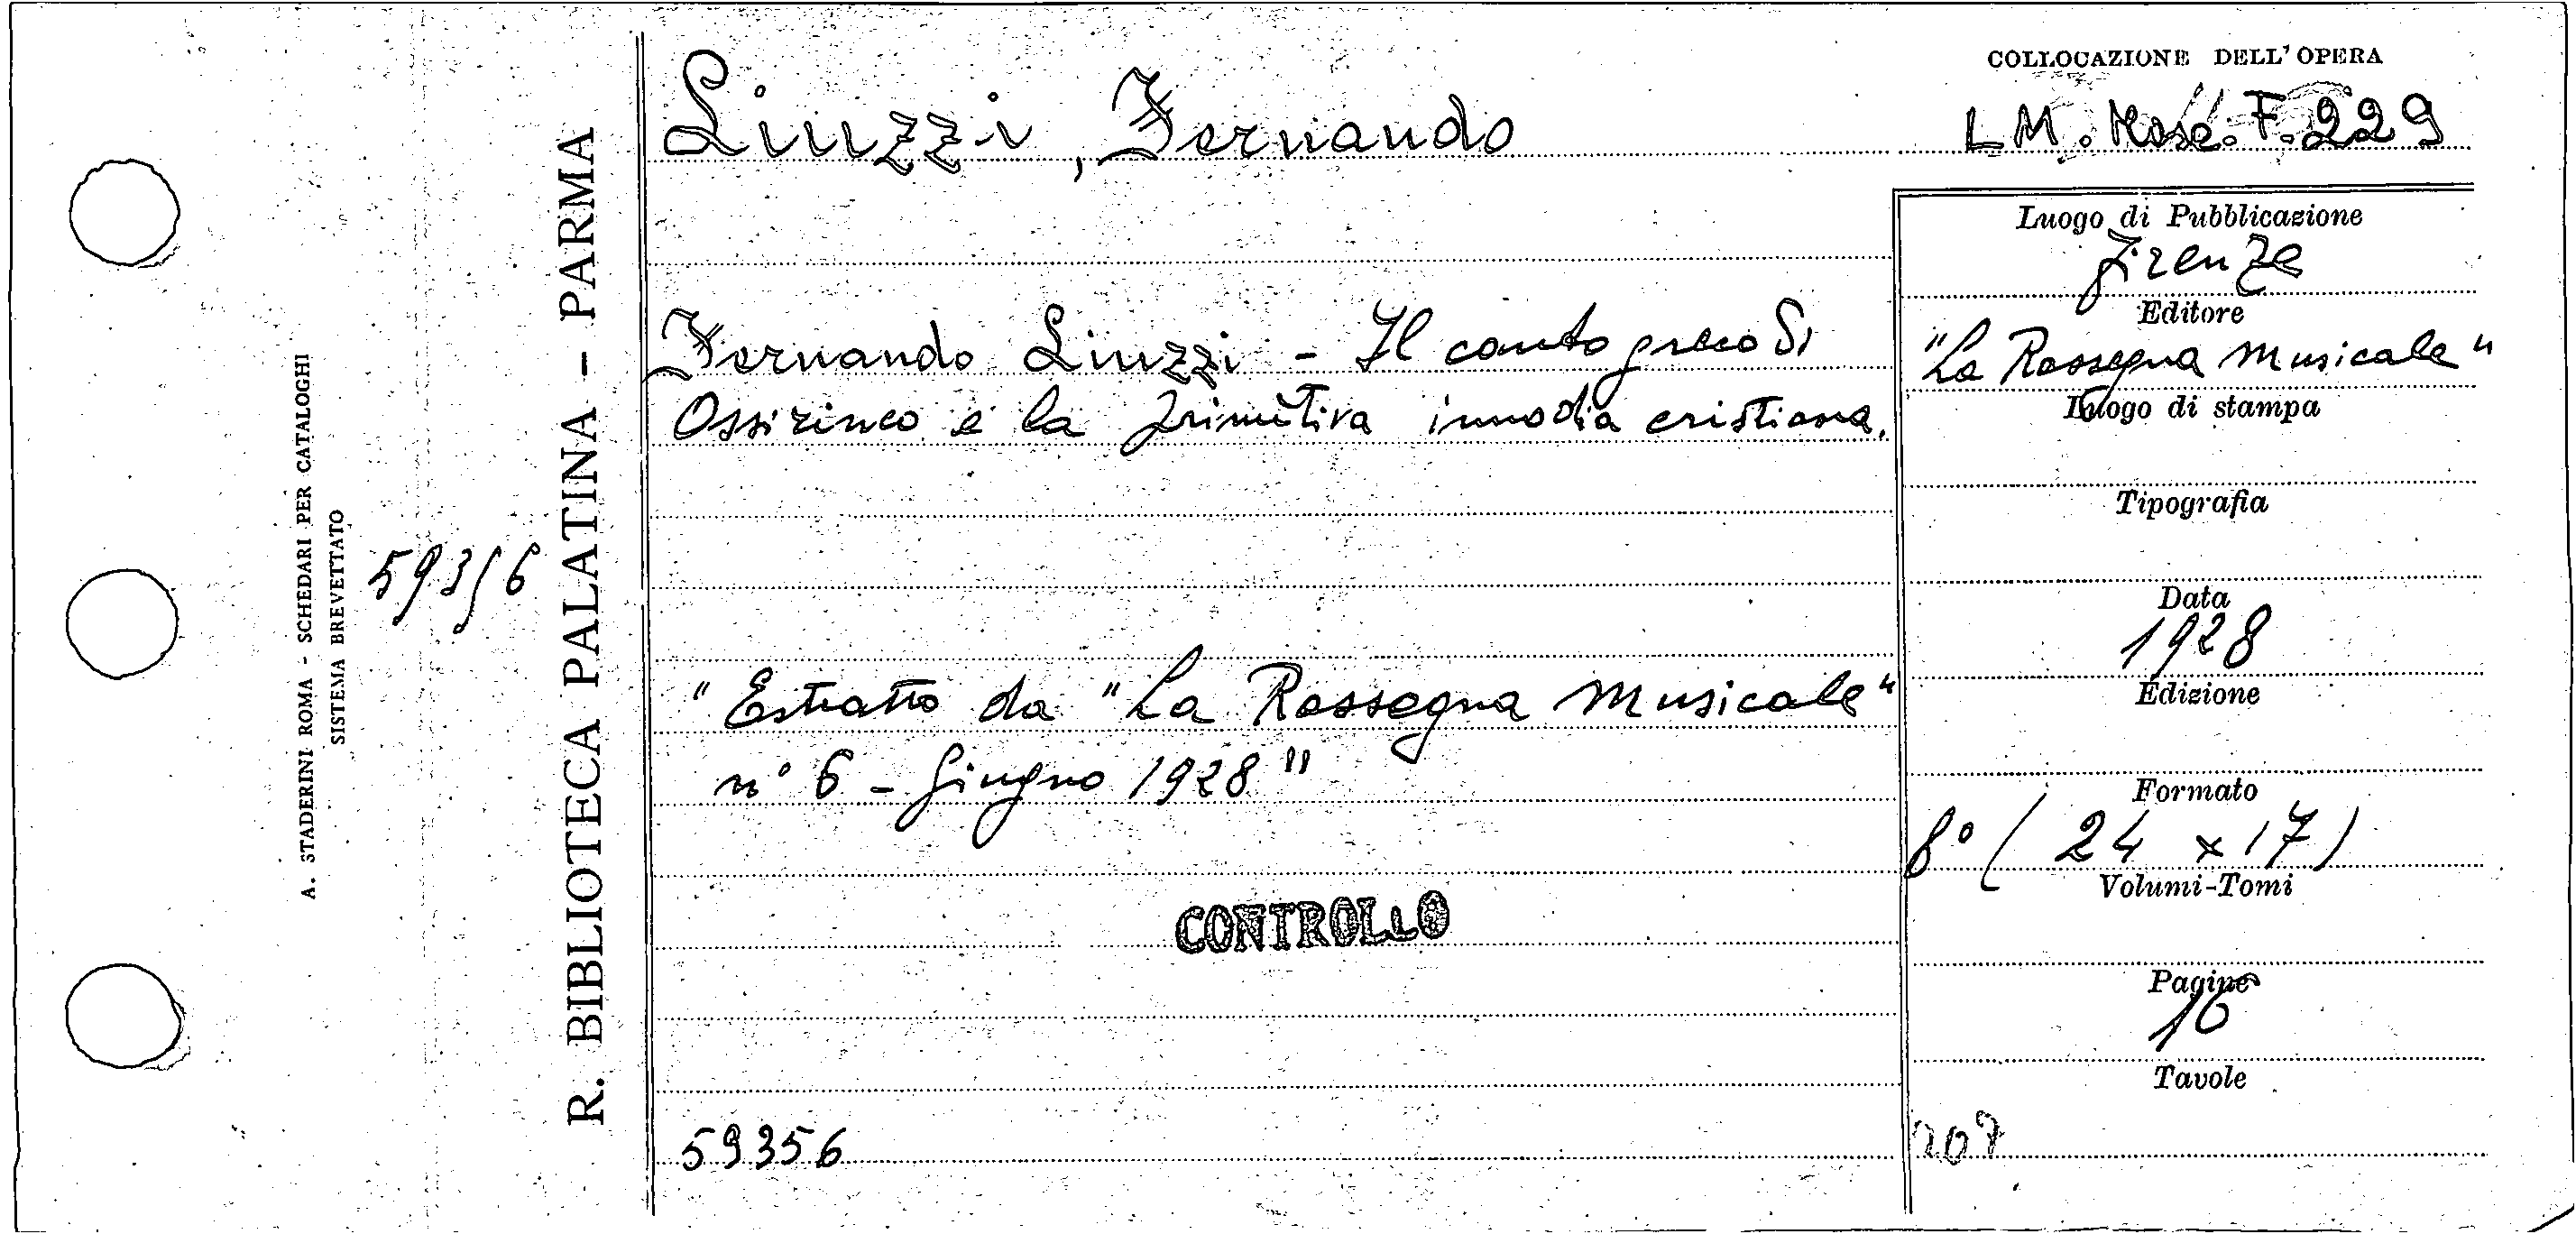 COLLOCAZIONE DELL'OPERA
Liuzzi, Fernando
LM. Misc. F. 229
Luogo di Pubblicazione
Firenze
Fernando Liuzzi - Il canto greco di
Ossirinco e la primitiva innodia cristiana.
Editore
"La Rassegna Musicale"
Luogo di stampa
Tipografia
Data
1928
Edizione
"Estratto da "La Rassegna Musicale"
n° 6 - Giugno 1928"
Formato
8° (24 x 17)
Volumi-Tomi
CONTROLLO
Pagine
16
Tavole
59356
207
R. BIBLIOTECA PALATINA - PARMA
59356
A. STADERINI ROMA - SCHEDARI PER CATALOGHI
SISTEMA BREVETTATO